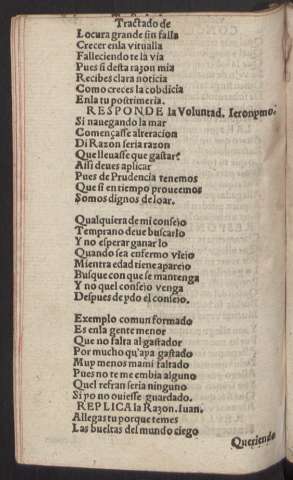 Tractado de
Locura grande sin falla
Crecer enla vitualla
Falleciendo te la via
Pues si desta razon mia
Recibes clara noticia
Como creces la cobdicia
Enla tu postrimeria.
RESPONDE la Voluntad. Ieronymo.
Si nauegando la mar
Començasse alteracion
Di Razon seria razon
Que lleuasse que gastar?
Assi deues aplicar
Pues de Prudencia tenemos
Que si en tiempo proueemos
Somos dignos de loar.
Qualquiera de mi consejo
Temprano deue buscarlo
Y no esperar ganarlo
Quando sea enfermo viejo
Mientra edad tiene aparejo
Busque con que se mantenga
Y no quel consejo venga
Despues de ydo el consejo.
Exemplo comun formado
Es enla gente menor
Que no falta al gastador
Por mucho qu'aya gastado
Muy menos a mi faltado
Pues no te me embia alguno
Quel refran seria ninguno
Si yo no ouiesse guardado.
REPLICA la Razon. Iuan.
Allegas tu porque temes
Las bueltas del mundo ciego
Queriendo